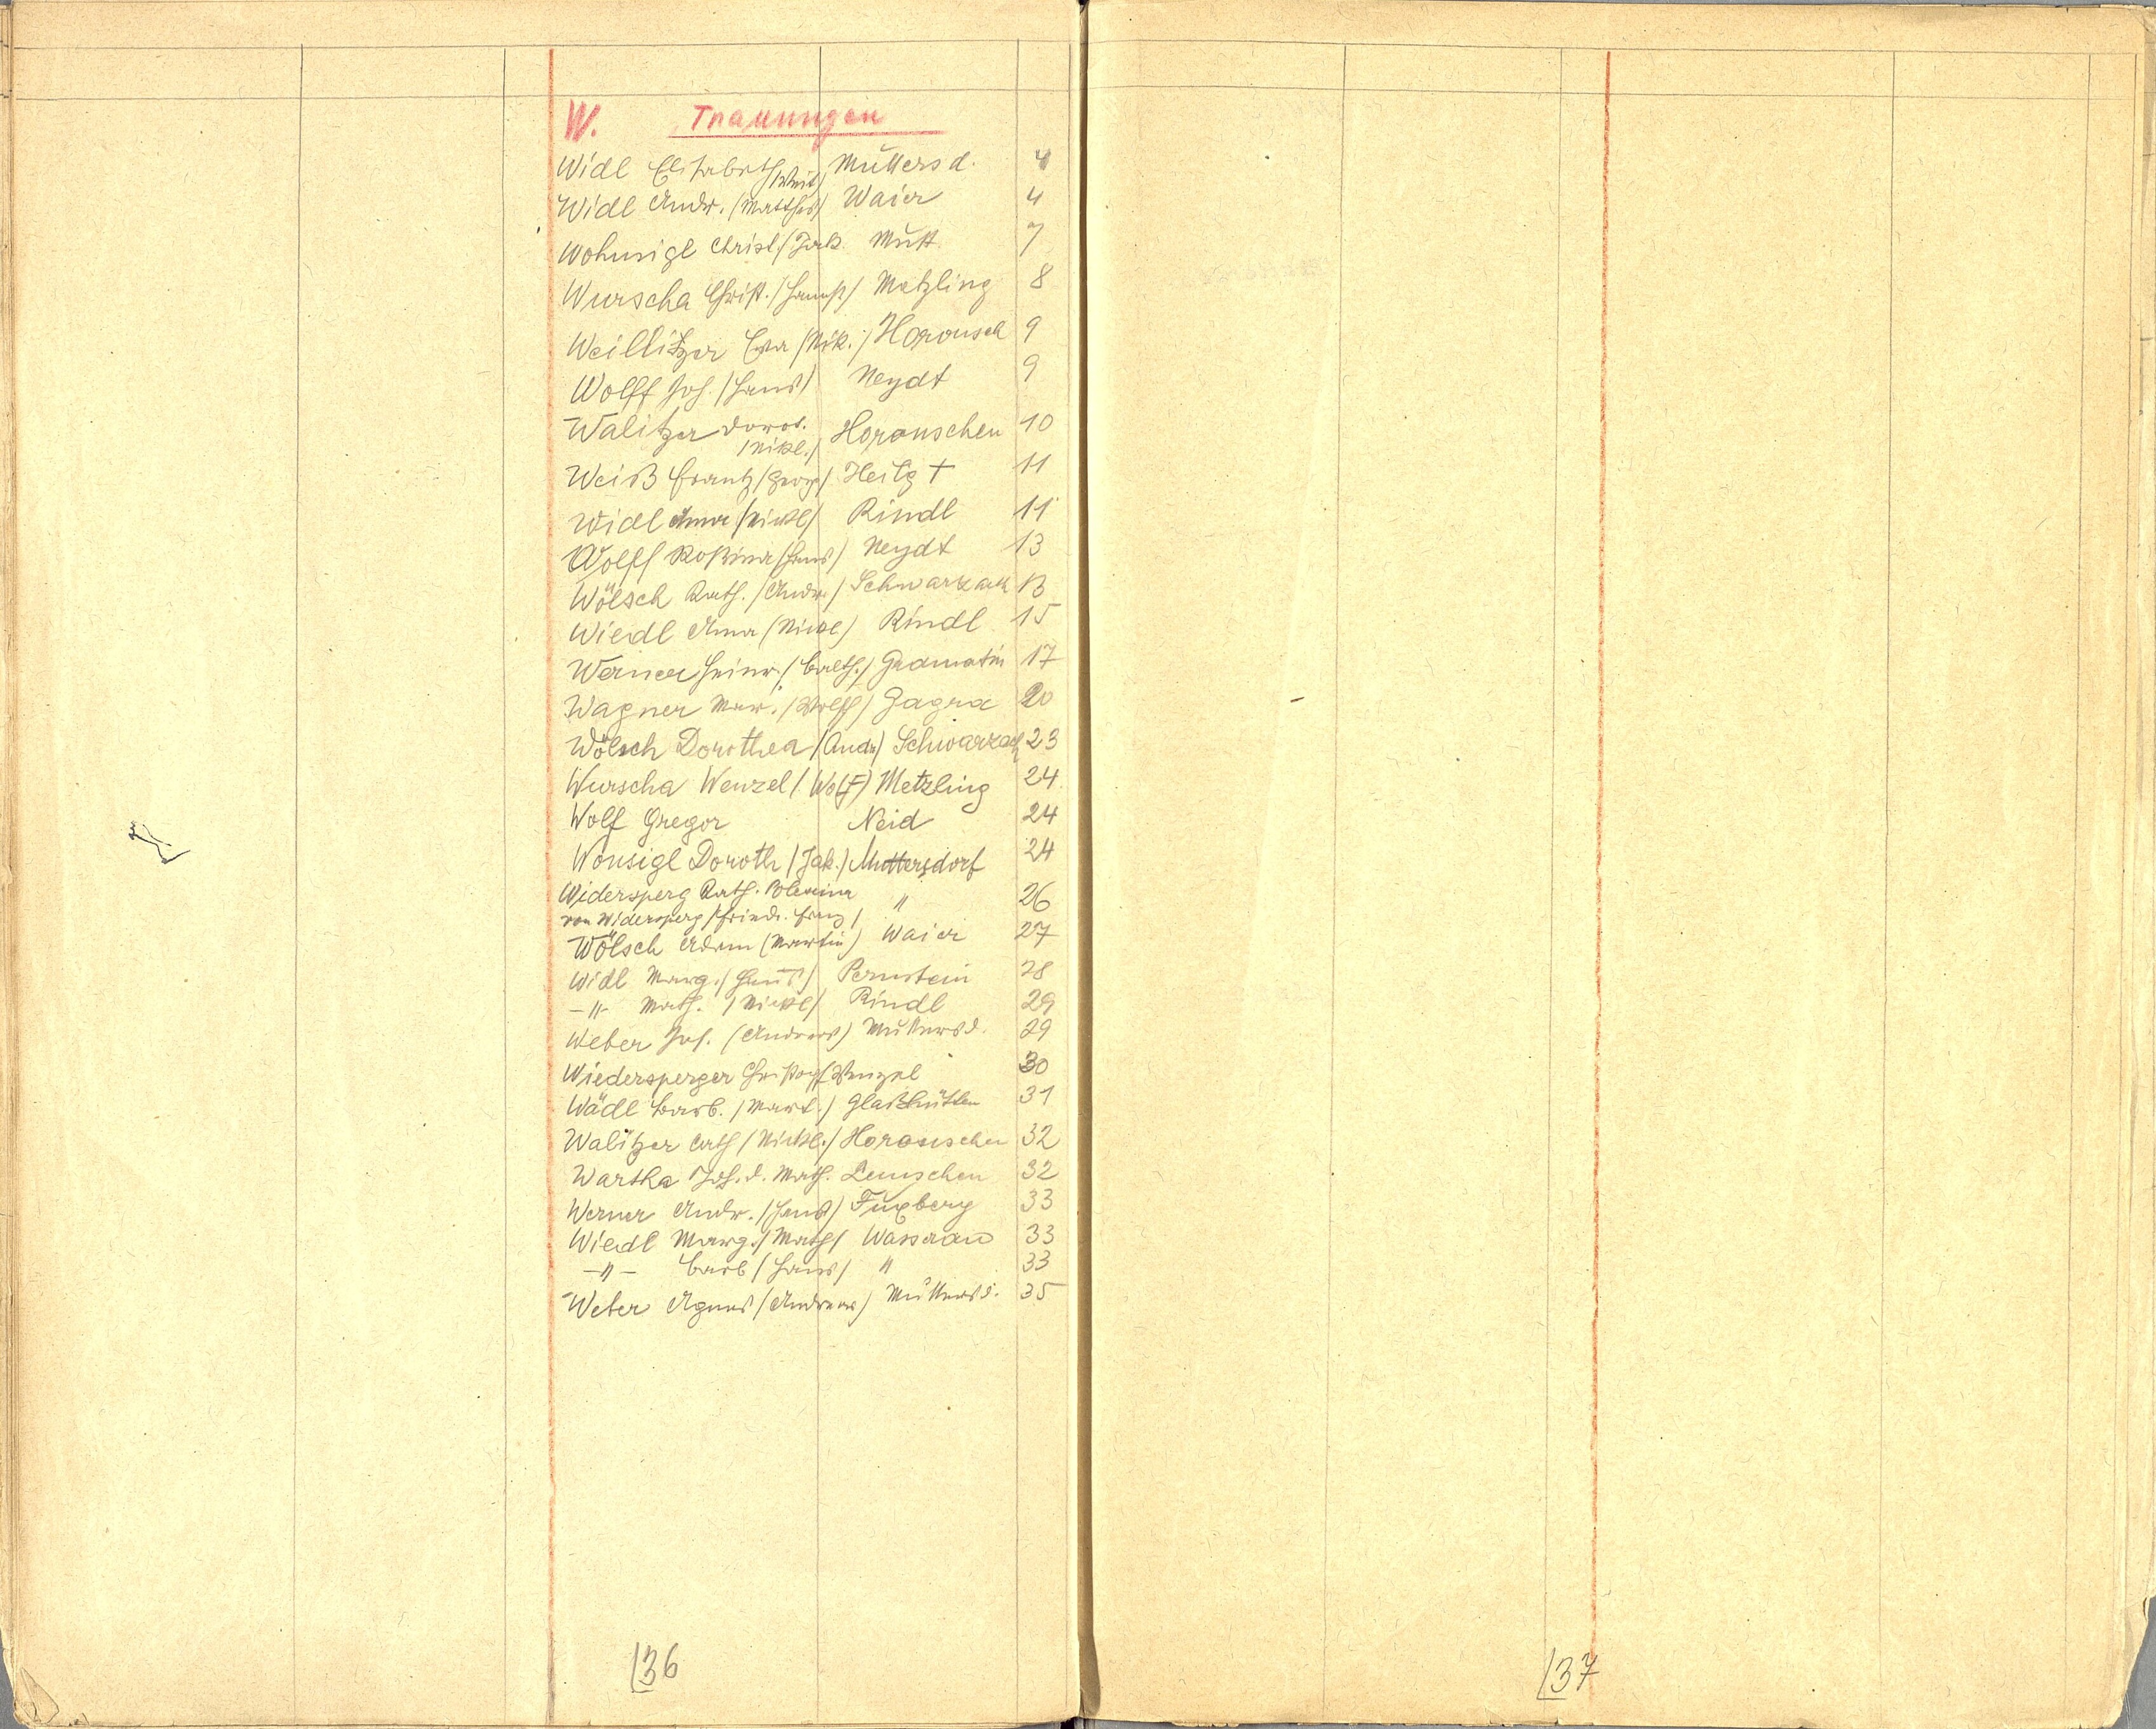 W. Trauungen
Widl Elisabeth /Veit/ Muttersd. 4
Widl Andr. /Matthes/ Waier 4
Wohnsigl Christ. /Jak. Mutt. 7
Wurscha Christ. /Hanß/ Metzling 8
Weillitzer Eva /Nik./ Horousch 9
Wolff Joh. /Hans/ Neydt 9
Walitzer Dorot. /Nikl./ Horouschen 10
Weiß Frantz /Georg/ Heilg † 11
Widl Anna /Nickl/ Rindl 11
Wolff Roßina /Hans/ Neydt 13
Wölsch Kath. /Andr./ Schwarzach 13
Wiedl Anna (Nickl) Rindl 15
Werner Heinr. /Balth./ 17
Wagner Mar. /Wolff/ Zagra 20
Wölsch Dorothea /Andr) Schwarzach 23
Wurscha Wenzel /Wolf) Metzling 24
Wolf Gregor Neid 24
Wonsigl Doroth /Jak.) Muttersdorf 24
Widersperg Kath. Polexina " 26
von Widersperg /Friedr. Franz/
Wölsch Adam (Martin) Waier 27
Widl Marg. /Hanß/ Pernstein 28
-"- Math. /Nickl/ Rindl 29
Weber Jos. (Andreas) Muttersd. 29
Wiedersperger Christoph Wenzel 30
Wädl Barb. /Mart./ Glaßhütten 31
Walitzer Cath /Nickl./ Horouschen 32
Wartha Joh. d. Math. Linschen 32
Werner Andr. /Hanß/ Fuxberg 33
Wiedl Marg. /Math/ Wasserau 33
-"- Barb /Hans/ " 33
Weber Agnes /Andreas) Muttersd. 35
136
137